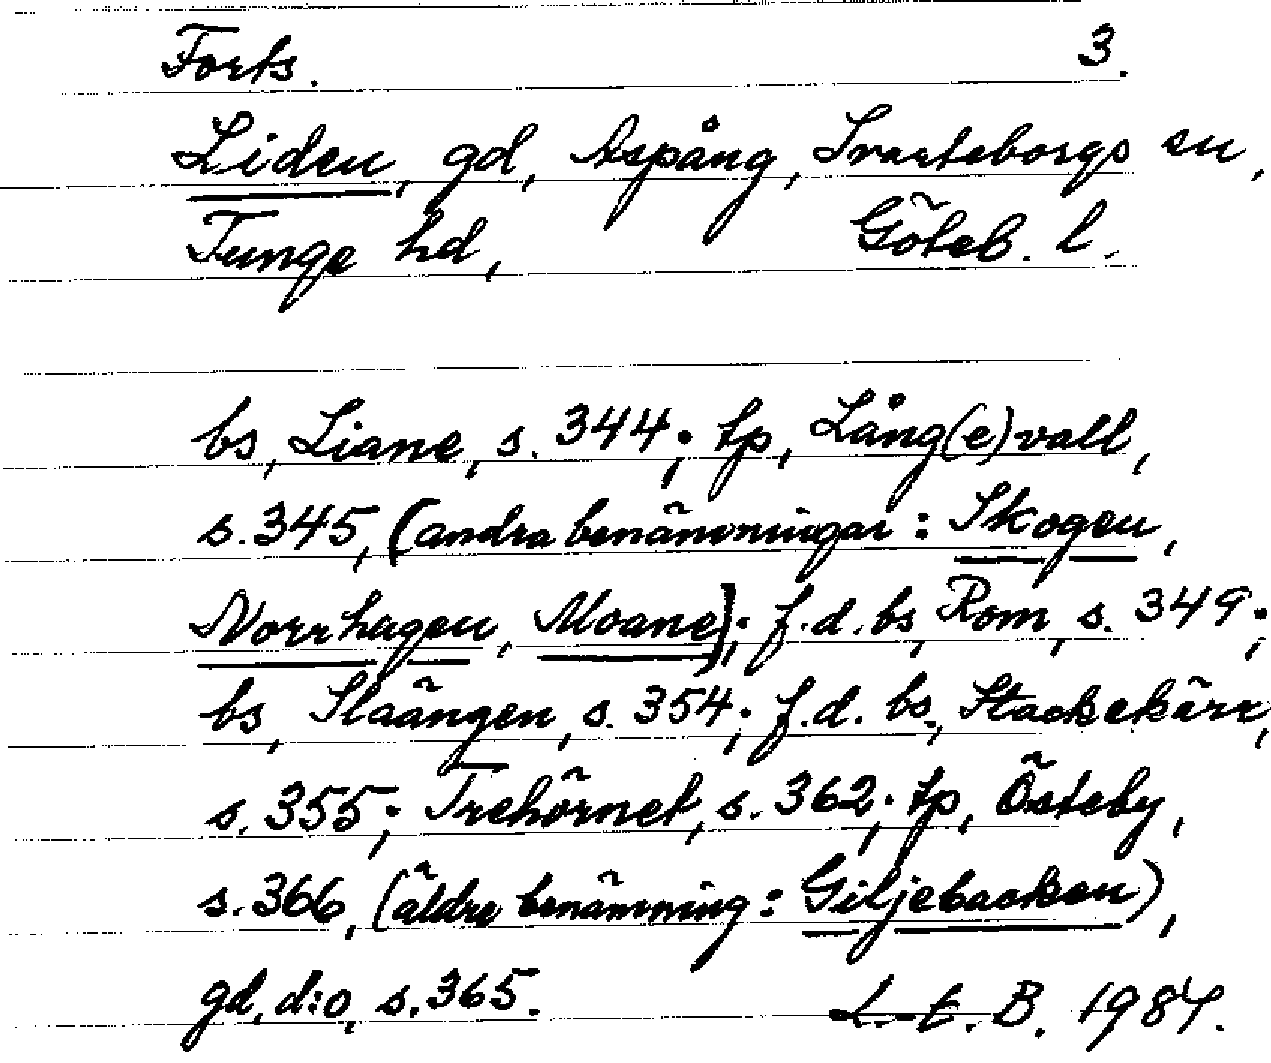 Forts. 3.
Liden, gd, Aspång, Svarteborgs sn,
Tunge hd, Göteb. l.
bs, Liane, s. 344; tp, Lång(e)vall,
s. 345, (andra benämningar: Skogen,
Norrhagen, Moane); f.d. bs, Rom, s. 349;
bs, Slaängen, s. 354; f.d. bs, Stackekärr,
s. 355; Trehörnet, s. 362; tp, Östeby,
s. 366, (äldre benämning: Giljebacken),
gd, d:o, s. 365. L. E. B. 1984.